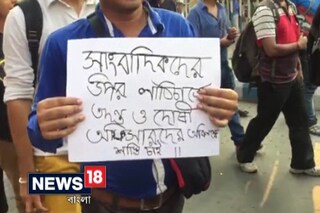 সাংবাদিকদের
উপর লাঠিচার্জে
তদন্ত ও দোষী
অফিসারদের
শাস্তি চাই !!
NEWS 18
বাংলা